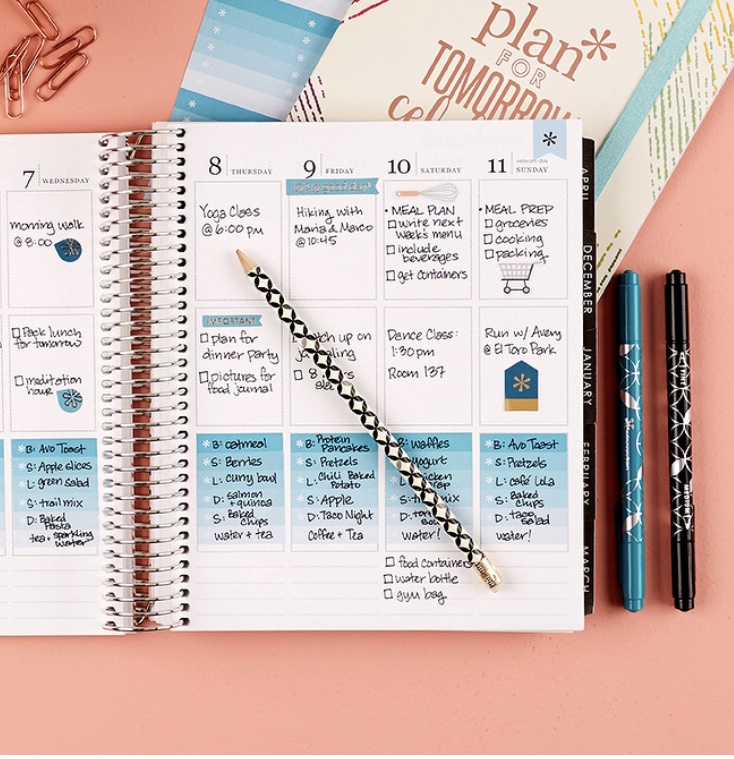 plan*
FOR
TOMORROW
7 WEDNESDAY
morning walk
@ 8:00
Pack lunch
for tomorrow
meditation
hour
B: Avo Toast
S: Apple slices
L: green salad
S: trail mix
D: Baked
Pasta
tea + sparkling
water
8 THURSDAY
Yoga Class
@ 6:00 pm
IMPORTANT
plan for
dinner party
pictures for
food journal
*B: oatmeal
S: Berries
L: curry bowl
D: salmon
+ quinoa
S: Baked
chips
water + tea
9 FRIDAY
Hiking with
Maria & Marco
@ 10:45
up on
8
*B: Protein
Pancakes
S: Pretzels
L: Chili Baked
Potato
S: Apple
D: Taco Night
Coffee + Tea
10 SATURDAY
• MEAL PLAN
write next
week's menu
include
beverages
get containers
Dance Class:
1:30 pm
Room 137
B: Waffles
yogurt
wrap
mix
D:
water!
food containers
water bottle
gym bag
veteran's day
11 SUNDAY
• MEAL PREP
groceries
cooking
packing
Run w/ Avery
@ El Toro Park
*B: Avo Toast
S: Pretzels
L: café Lola
S: Baked
chips
D: taco
salad
water!
APRIL
DECEMBER
JANUARY
FEBRUARY
MARCH